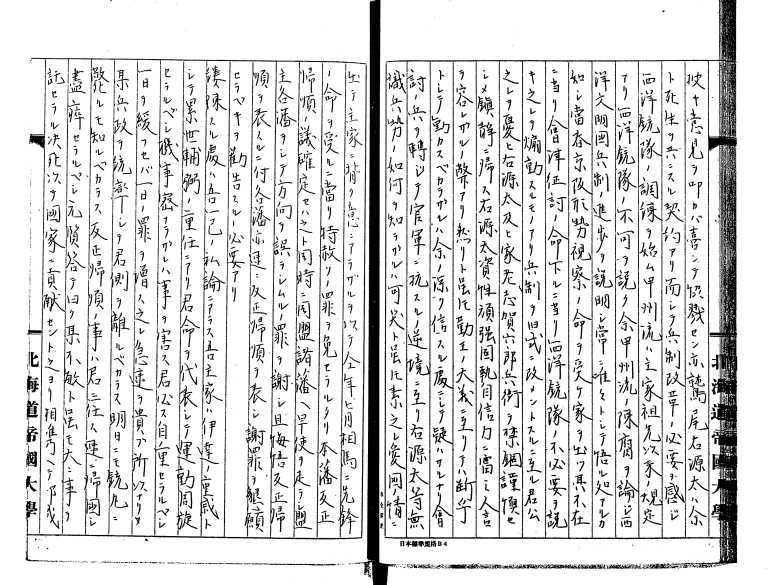 挾ナ意見ヲ叩カバ喜ンデ饋餞セン亦鷲尾右源太ハ余
ト死生ヲ共ニスル契約アリ而シテ兵制改革ノ必要ヲ感ジ
西洋銃隊ノ調練ヲ始ム甲州流ハ主家祖先以来ノ規定
アリ西洋銃隊ノ不可ヲ説ク余甲州流ノ陳腐ヲ論ジ西
洋文明國兵制ノ進歩ヲ説明シ常ニ唯々トシテ悟ル処アルカ
如シ當春京阪形勢視察ノ命ヲ受ケ家ヲ出ツ其不在
ニ當リ會津征討ノ命下ルニ當リ西洋銃隊ノ不必要ヲ説
キ之レヲ煽動スルモノアリ兵制ヲ旧式ニ改メントスルニ至ル君公
之レヲ憂ヒ右源太及ヒ家老志賀六郎兵衛ヲ禁錮謹慎セ
シメ鎮静ニ帰ス右源太資性頑強固執自信力ニ富ミ人言
ヲ容レザルノ弊アリ然リト虽モ勤王ノ大義ニ至リテハ断乎
トシテ動カスベカラザルハ余ノ深ク信スル處ニシテ疑ハザルナリ會
討ノ兵ヲ轉シテ官軍ニ抗スルノ逆境ニ至リ右源太等無
識兵勢ノ如何ヲ知ラザルハ可笑ト虽モ素之レ愛國ノ情ニ
出テ主家ニ背ク意ニアラザルヲ以テ今年七月相馬ニ先鋒
ノ命ヲ受ルニ當リ特赦ノ一等ヲ免セラルタリ本藩反正
帰順ノ議確定セハ之ト同時ニ同盟諸藩ヘ早使ヲ走ラシ盟
主各藩ヲシテ方向ヲ誤ラシムルノ罪ヲ謝シ且悔悟反正帰
順ヲ表スルニ付各藩亦速ニ反正帰順ヲ表シ謝罪ヲ懇願
セラベキヲ勧告スルノ必要アリ
湊疎スル處ハ吾一己ノ私論ニアラス吾主家ハ伊達ノ重感ト
シテ累世輔弼ノ重任ニアリ君命ヲ代表シテ運動周旋
セラルベシ機事密ナラザレハ事ヲ害ス君公以自重セラルベシ
一日ヲ緩フセバ一日ノ罪ヲ増ス之レ急速ヲ貴フ所以ナリ
某兵政ヲ統轄シテ君側ヲ離ルベカラス明日ニモ銃丸ニ
斃ルヽモ知ルベカラス反正帰順ノ事ハ君ニ任ス速ニ帰國シ
盡瘁セラルベシ元質答テ曰ク某不敏ト虽モ大ニ事ヲ
託セラル決死以テ國家ニ貢献セントス之ヨリ相携ヘテ
北海道帝國大學
北海道帝國大學
日本標準規格B4